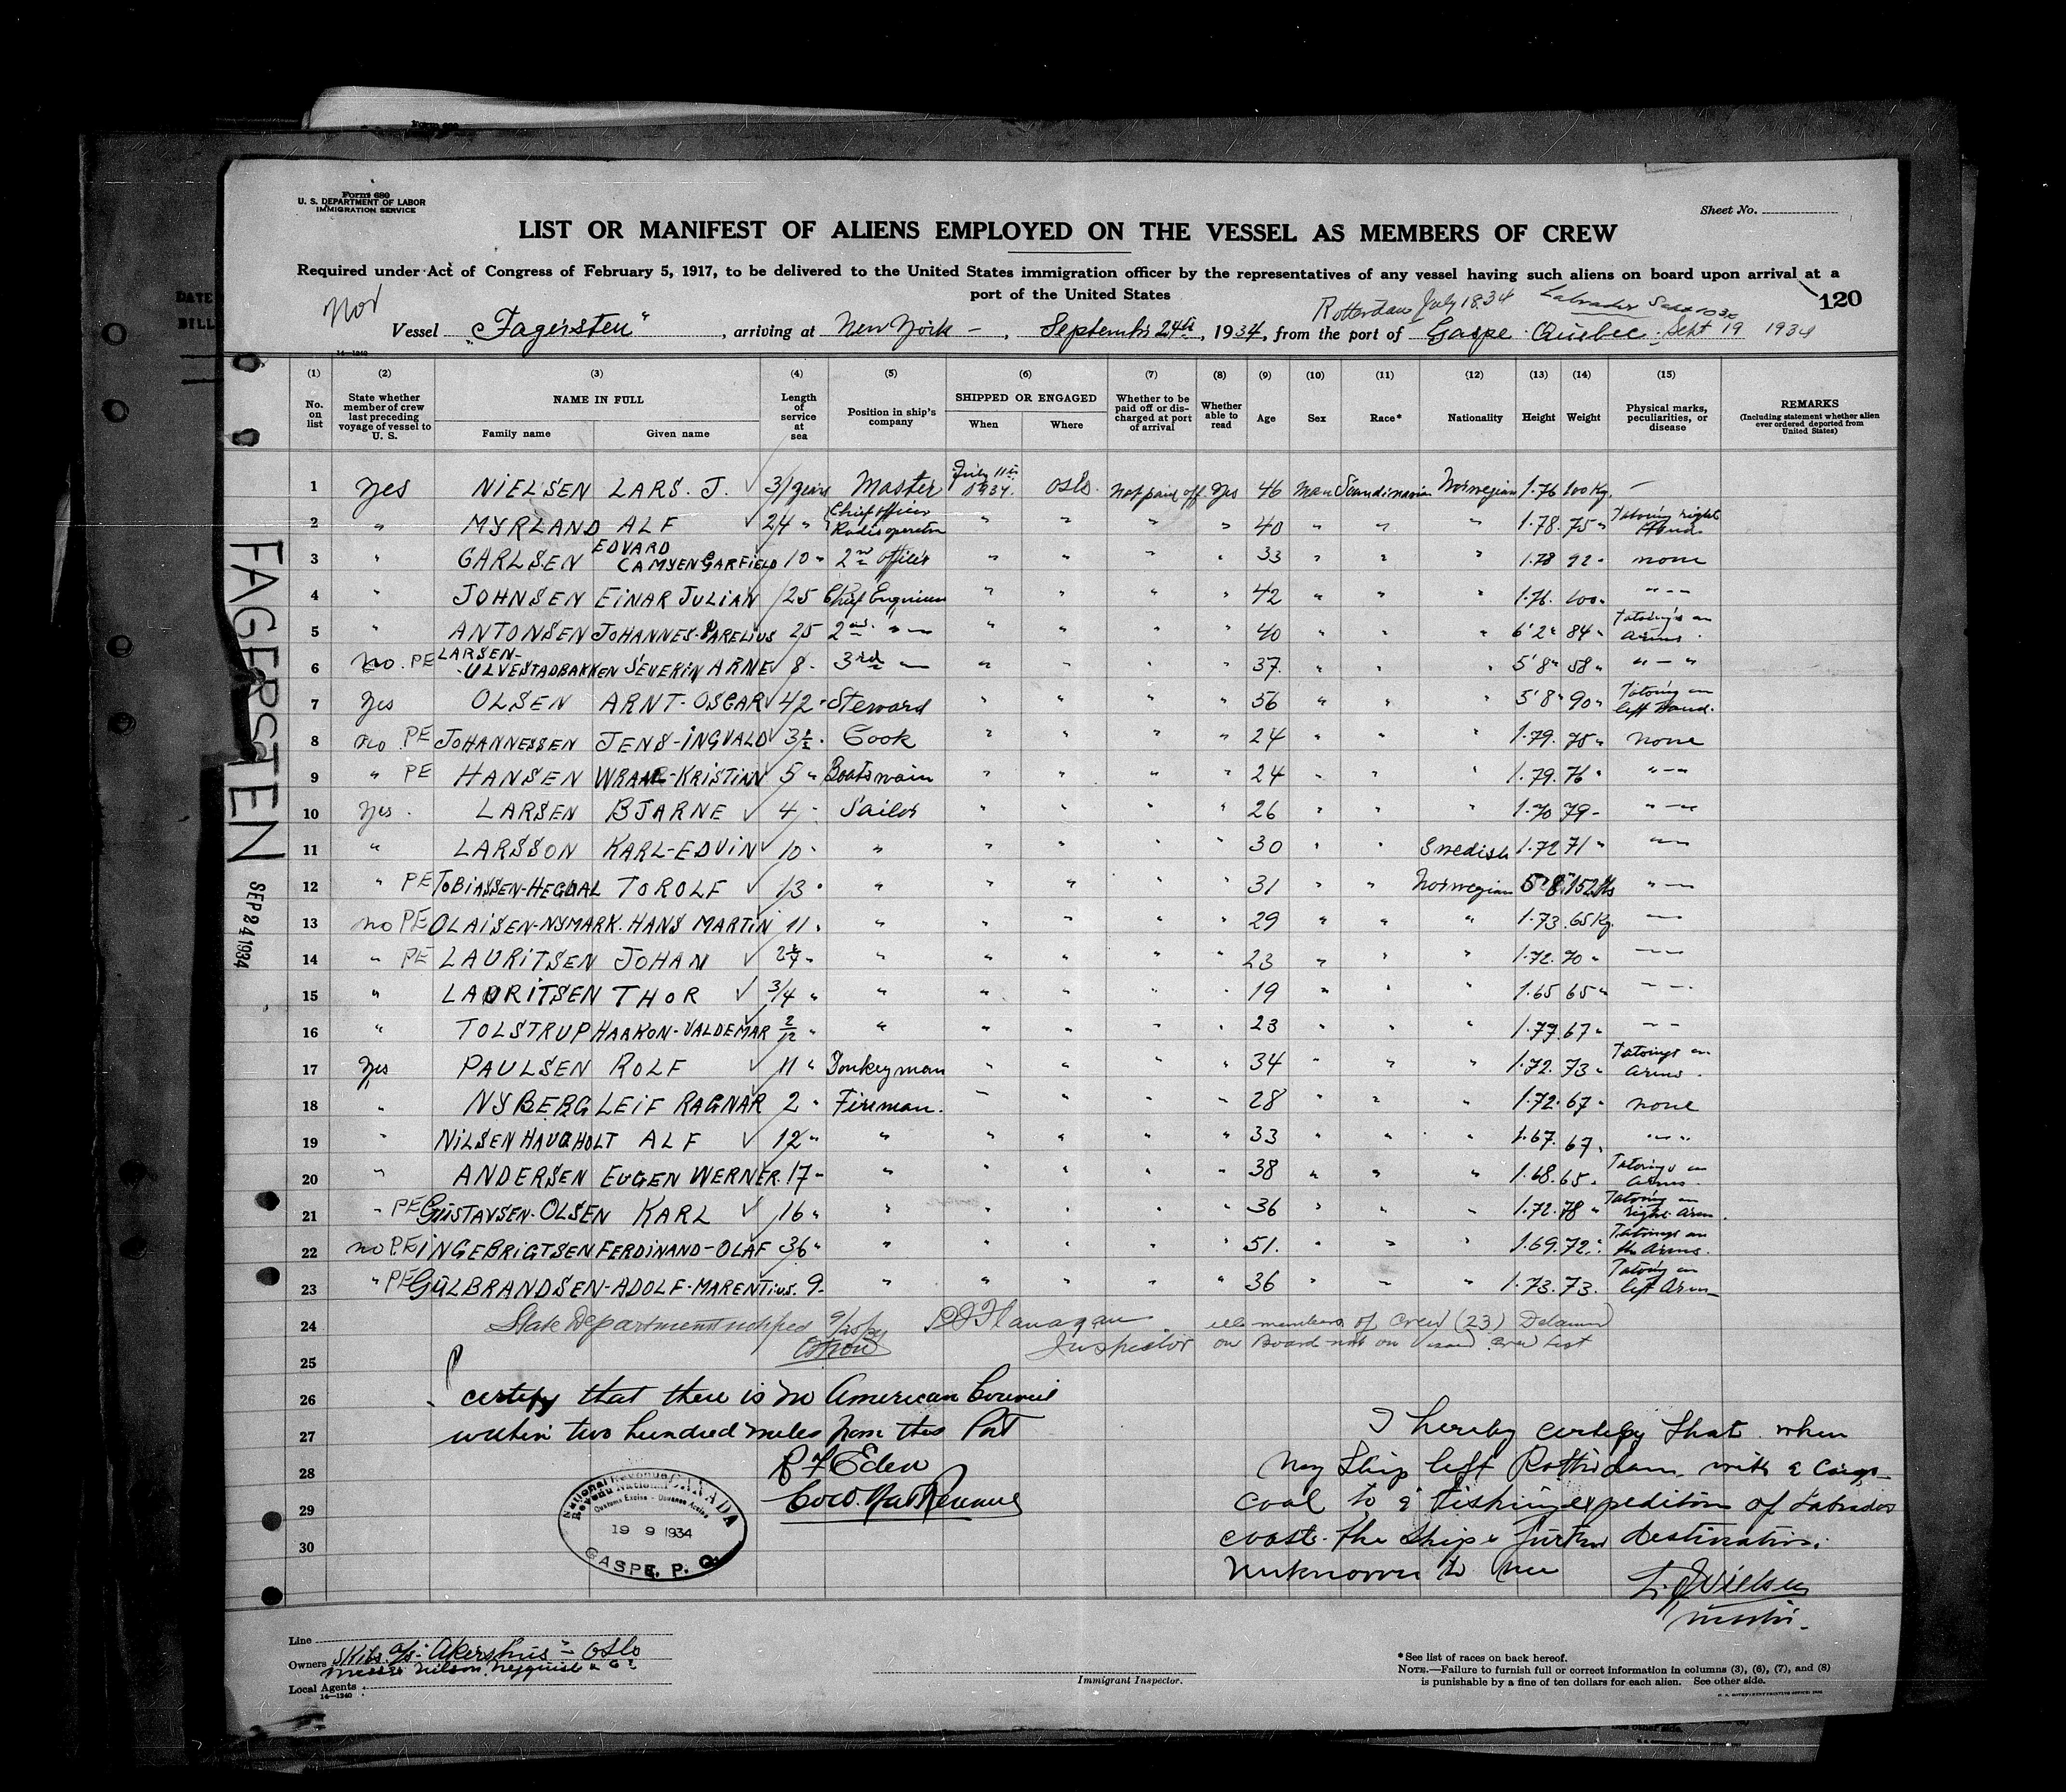 Form 680
U. S. DEPARTMENT OF LABOR
IMMIGRATION SERVICE
Sheet No.
LIST OR MANIFEST OF ALIENS EMPLOYED ON THE VESSEL AS MEMBERS OF CREW
Required under Act of Congress of February 5, 1917, to be delivered to the United States immigration officer by the representatives of any vessel having such aliens on board upon arrival at a
port of the United States
120
Nor
Rotterdam July 18.34 Labrador Sept
Vessel "Fagersten", arriving at New York, September 24th, 1934, from the port of Gaspe Quebec. Sept 19 1934
14—1240
(1) (2) (3) (4) (5) (6) (7) (8) (9) (10) (11) (12) (13) (14) (15)
No. on list
State whether member of crew last preceding voyage of vessel to U. S.
NAME IN FULL
Family name Given name
Length of service at sea
Position in ship's company
SHIPPED OR ENGAGED
When Where
Whether to be paid off or discharged at port of arrival
Whether able to read
Age Sex Race* Nationality Height Weight
Physical marks, peculiarities, or disease
REMARKS
(Including statement whether alien ever ordered deported from United States)
1 Yes NIELSEN LARS. J. 31 years Master July 11th 1934. Oslo. Not paid off Yes 46 Man Scandinavian Norwegian 1.76 100 Kg. —
2 " MYRLAND ALF 24 " Chief officer Radio operator " " " " 40 " " " 1.78. 75 " Tatoing right Hand.
3 " GARLSEN EDVARD CAMYEN GARFIELD 10 " 2nd officer " " " " 33 " " " 1.78 92 " none
4 " JOHNSEN EINAR JULIAN 25 Chief Engineer " " " " 42 " " " 1.76. 100 " " — —
5 " ANTONSEN JOHANNES-PARELIUS 25 2nd " — " " " " 40 " " " 6'2" 84 " Tatoings on arms.
6 No. PE LARSEN-ULVESTADBAKKEN SEVERIN ARNE 8 " 3rd — " " " " 37. " " " 5'8" 58 " " — "
7 Yes OLSEN ARNT-OSCAR 42 " Steward " " " " 56 " " " 5'8" 90 " Tatoing on left Hand.
8 no PE JOHANNESSEN JENS-INGVALD 3½ " Cook " " " " 24 " " " 1.79. 75 " none
9 " PE HANSEN KRISTIAN 5 " Boatswain " " " " 24 " " " 1.79. 76 " " — "
10 Yes. LARSEN BJARNE 4 " Sailor " " " " 26 " " " 1.70 79 " " — "
11 " LARSSON KARL-EDVIN 10 " " " " " " 30 " " Swedish 1.72 71 " " — "
12 " PE TOBIASSEN-HEGDAL TOROLF 13 " " " " " " 31 " " Norwegian 5'8" 152 lbs " —
13 no PE OLAISEN-NYMARK. HANS MARTIN 11 " " " " " " 29 " " " 1.73. 65 Kg. " —
14 " PE LAURITSEN JOHAN " " " " " " 23 " " " 1.72. 70 " " —
15 " LAURITSEN THOR 3/4 " " " " " " 19 " " " 1.65 65 " — —
16 " TOLSTRUP HAAKON-VALDEMAR 2/12 " " " " " " 23 " " " 1.77. 67 " — —
17 Yes PAULSEN ROLF 11 " Donkeyman " " " " 34 " " " 1.72. 73 " Tatoings on arms.
18 " NYBERG LEIF RAGNAR 2 " Fireman. — " " " 28 " " " 1.72. 67 " none
19 " NILSEN HAUGHOLT ALF 12 " " " " " " 33 " " " 1.67. 67 " " — "
20 " ANDERSEN EUGEN WERNER. 17 " " " " " " 38 " " " 1.68. 65 " Tatoings on arms.
21 " PE GUSTAVSEN-OLSEN KARL 16 " " " " " " 36 " " " 1.72. 78 " Tatoing on right Arm.
22 no PE INGEBRIGTSEN FERDINAND-OLAF 36 " " " " " " 51. " " " 1.69. 72 " Tatoings on the Arms.
23 " PE GULBRANDSEN-ADOLF-MARENTIUS. 9 " " " " " " 36 " " " 1.73. 73. Tatoing on left Arm
24 State Department notified Flanagan members of crew (23) Detained
25 Inspector on Board not on Visaed crew List
26 certify that there is no American Council
27 within two hundred miles from this Port
28 Eden
29
30
National Revenue CANADA
Revenu National
Customs Excise - Douanes Accise
19 9 1934
GASPE, P. Q.
I hereby certify that when
my ship left Rotterdam with a Cargo
coal to a Fishing expedition of Labrador
coast. the ships further destination.
unknown to me
L. J. Nielsen
master.
FAGERSTEN
SEP 24 1934
Line
Owners Skibs a/s "Akershus" - Oslo
Messrs Nilson
Local Agents
14—1240
Immigrant Inspector.
*See list of races on back hereof.
NOTE.—Failure to furnish full or correct information in columns (3), (6), (7), and (8)
is punishable by a fine of ten dollars for each alien. See other side.